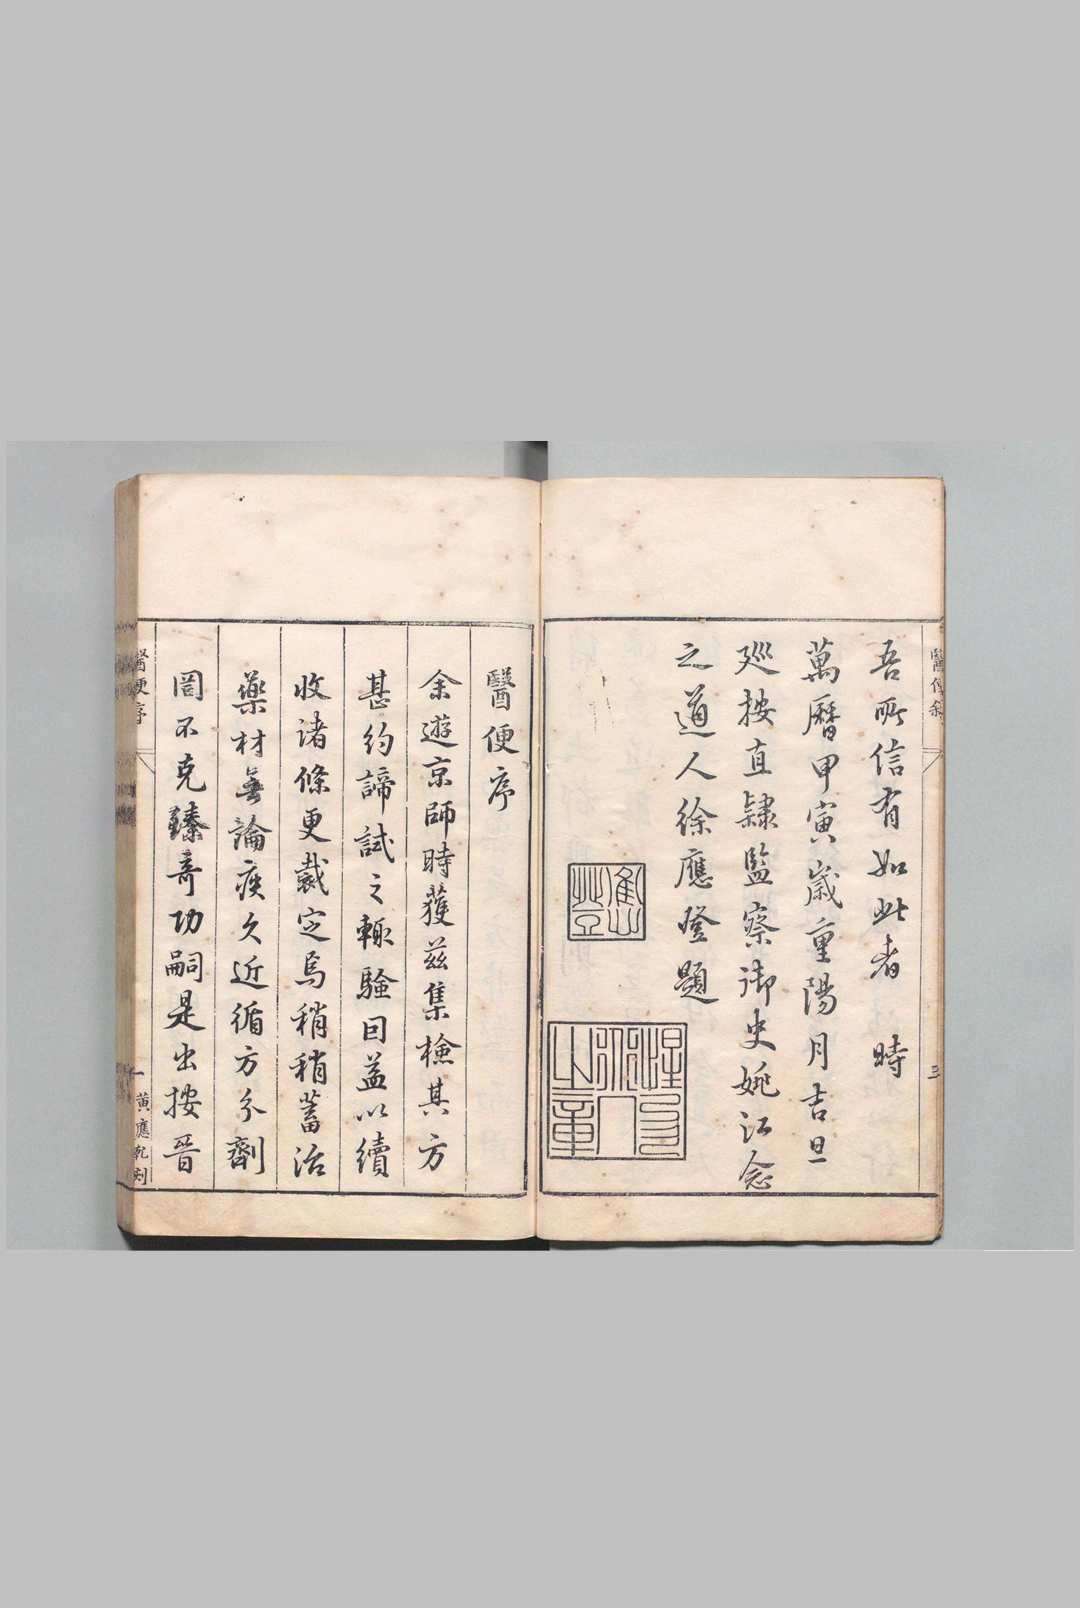 吾所信有如此者 時
萬曆甲寅歲重陽月吉旦
廵按直隸監察御史姚江念
之道人徐應登題
三
醫便序
余遊京師時獲茲集檢其方
甚約諦試之輒驗囙益以續
收諸條更裁定焉稍稍蓄治
藥材無論疾久近循方分劑
罔不克臻奇功嗣是出按晉
醫便序
一
黃應乾刻